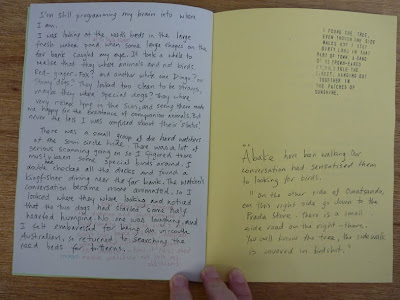 I'm still programming my brain into when
I am.
I was looking on the birds in the large
fresh water pond when some large shapes on the
far bank caught my eye. It took a while to
realise that they were animals and not birds.
fox? and another while one Dingo? no
Stray dogs? They looked too clean to be strays,
maybe they were special dogs? They were
very relaxed lying in the sun, and seeing them made
me happy for the existence of companion animals. But
never the less I was confused about their status.
There was a small group of die hard watchers
at the circle hide. There was a lot of
serious scanning going on so I figured there
must been some special birds around. I
double checked all the ducks and found a
Kingfisher dining near the far bank. The watchers
conversation became more animated, so I
looked what they were looking and noticed
that the two dogs had started some half
hearted humping. No one was laughing and
I felt embarrassed for being an uncouth
Australian, so returned to searching the
reed beds for bitterns.
I found one tree,
even though the side
walks
dirty like in that
part of town. A band
of
the
street, hanging out
together in
the patches of
sunshine.
...
Abake have been walking. Our
conversation had sensitised them
to looking for birds.
"On the other side of Omotesando,
on this right side go down to the
Prada Store. There is a small
side road on the right - there.
You will know the tree, the sidewalk
is covered in birdshit."